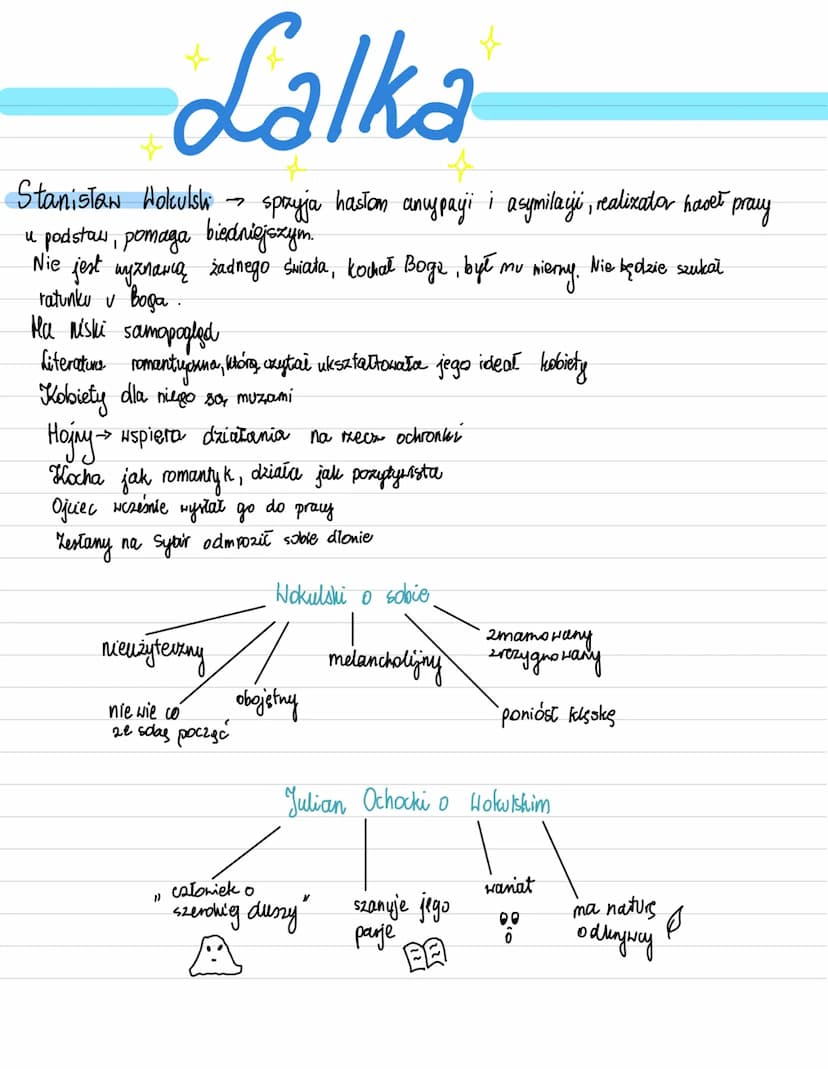 Lalka
Stanisław Wokulski → sprzyja hasłom emancypacji i asymilacji, realizator haseł pracy
u podstaw, pomaga biedniejszym.
Nie jest wyznawcą żadnego świata, kochał Boga, był mu wierny. Nie będzie szukał
ratunku u Boga.
Ma niski samopogląd
Literatura romantyczna, którą czytał ukształtowała jego ideał kobiety
Kobiety dla niego są muzami
Hojny → wspiera działania na rzecz ochronki
Kocha jak romantyk, działa jak pozytywista
Ojciec wcześnie wysłał go do pracy
Zesłany na Sybir odmroził sobie dłonie
Wokulski o sobie
nieużyteczny
nie wie co
ze sobą począć
obojętny
melancholijny
zmarnowany
zrezygnowany
poniósł klęskę
Julian Ochocki o Wokulskim
"człowiek o
szerokiej duszy"
szanuje jego
pasje
wariat
ma naturę
odkrywcy